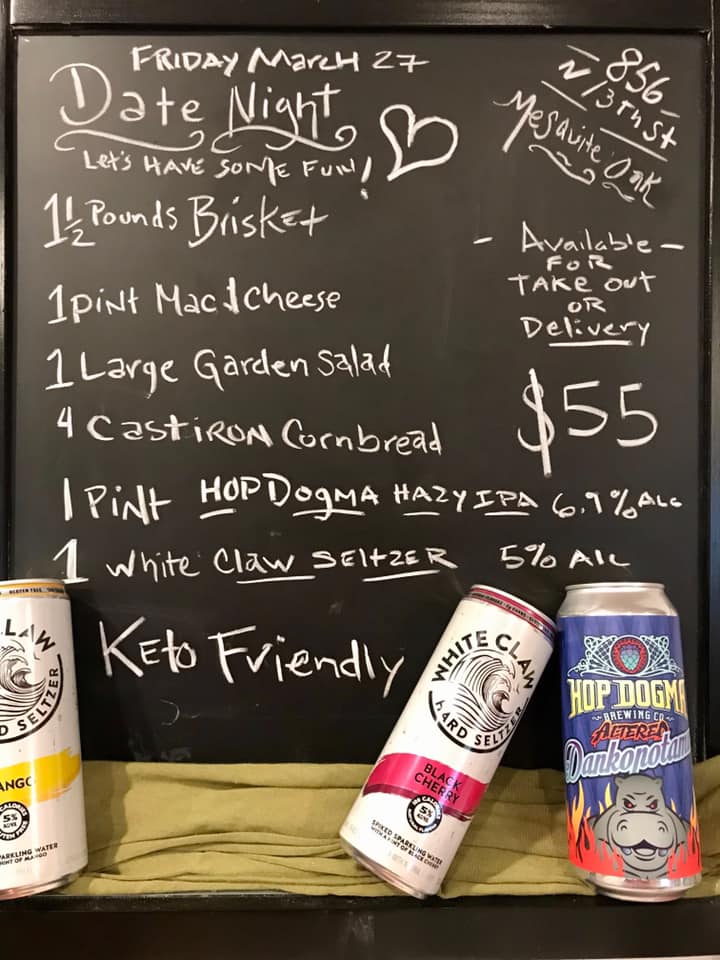 FRIDAY March 27
Date Night
Let's HAVE SOME FUN!
856
N 13TH St
Mesquite Oak
1 1/2 Pounds Brisket
- Available -
FOR
TAKE OUT
OR
Delivery
1 pint Mac & Cheese
1 Large Garden Salad
$55
4 CastiRON Cornbread
1 Pint HOP DOgMA HAZY IPA 6.9% ALC
1 White Claw SEltZER 5% Alc
Keto Friendly
LAW
D SELTZER
ANGO
5%
SPARKLING WATER
HINT OF MANGO
WHITE CLAW
HARD SELTZER
BLACK
CHERRY
5%
SPIKED SPARKLING WATER
WITH A HINT OF BLACK CHERRY
HOP DOGMA
BREWING CO.
ALTERED
Dankopotam